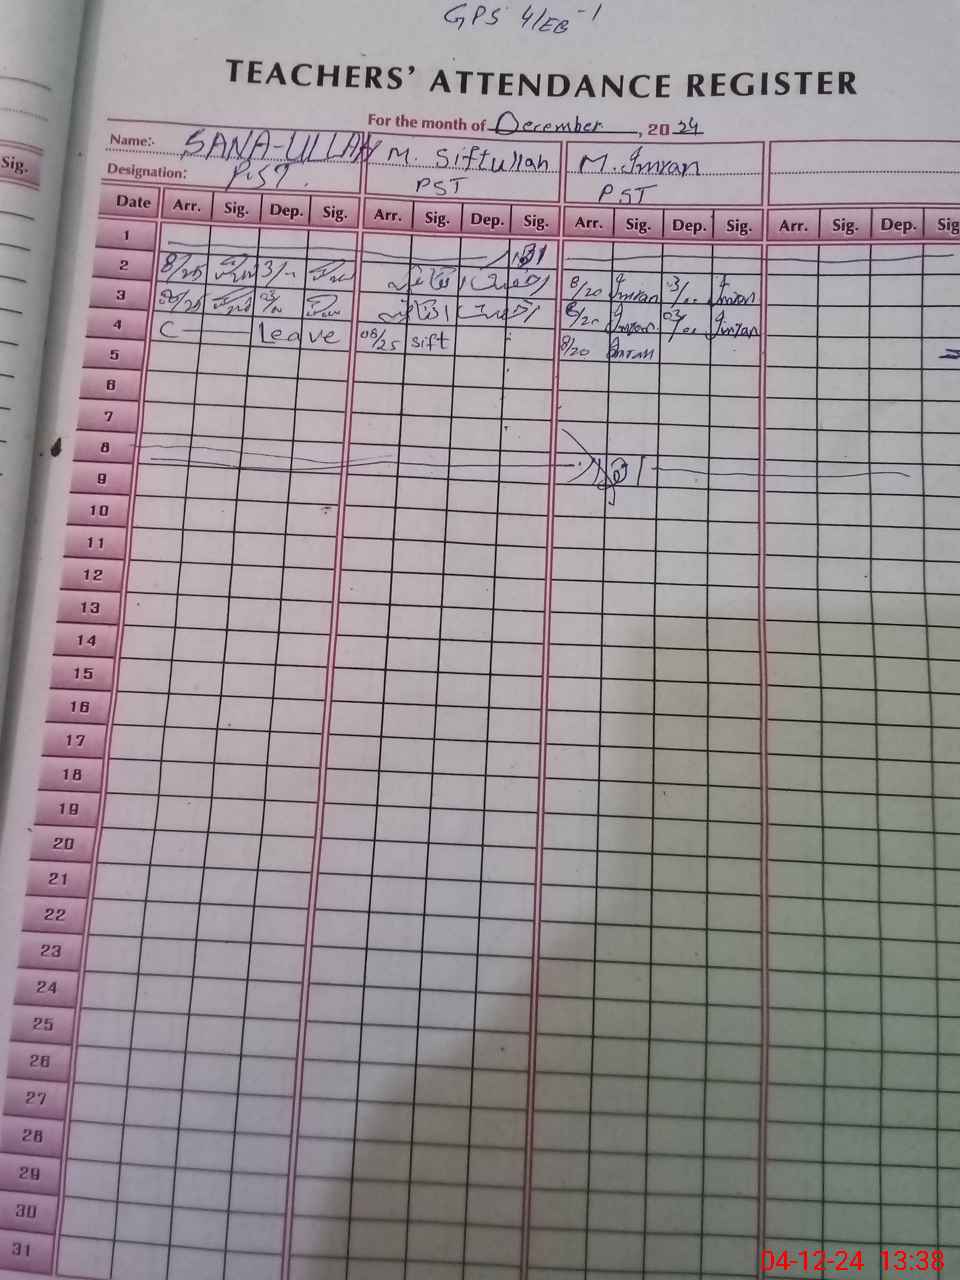 GPS 4/EB-1
TEACHERS' ATTENDANCE REGISTER
For the month of December, 2024
Name:- SANA-ULLAH M. Siftullah M. Imran
Designation: P.S.T. PST PST
Sig.
Date Arr. Sig. Dep. Sig. Arr. Sig. Dep. Sig. Arr. Sig. Dep. Sig. Arr. Sig. Dep. Sig
1
2 8/25 3/- 8/20 Imran 3/.. Imran
3 08/25 8/20 Imran 03/.. Imran
4 C Leave 08/25 sift 8/20 Imran
5
6
7
8
9
10
11
12
13
14
15
16
17
18
19
20
21
22
23
24
25
26
27
28
29
30
31
04-12-24 13:38